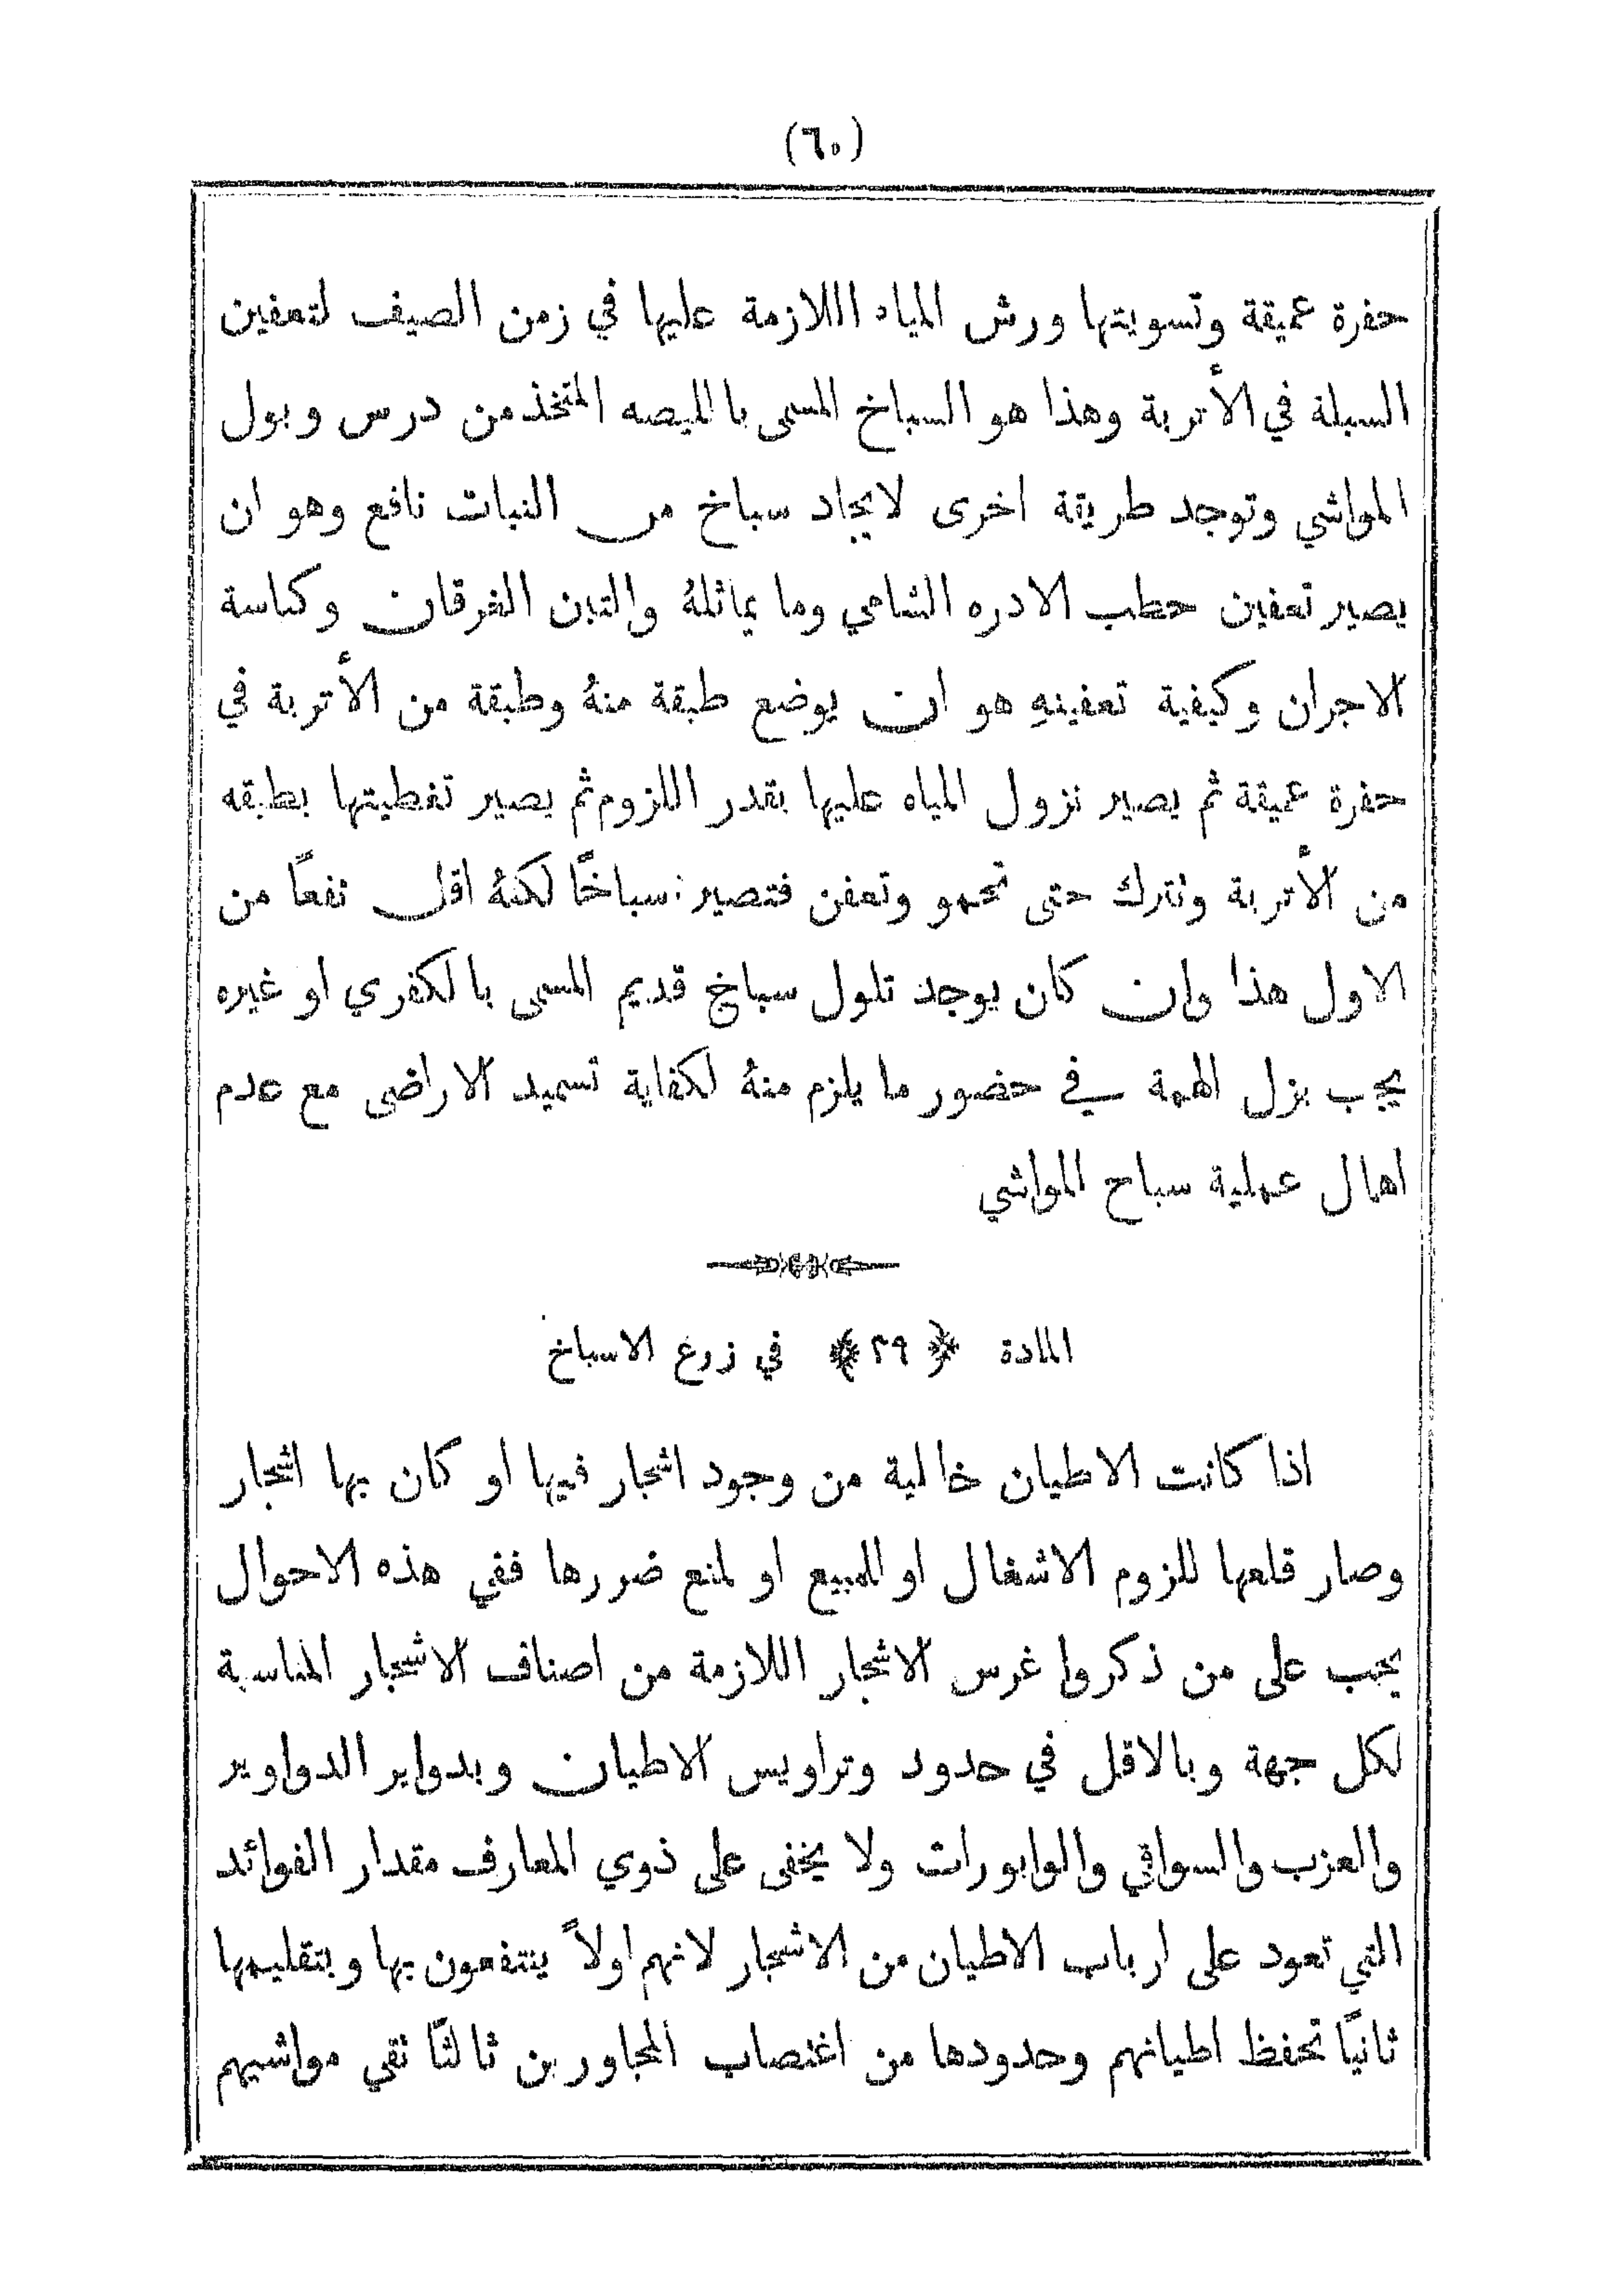 (٦٠)
حفرة عميقة وتسويتها ورش المياه اللازمة عليها في زمن الصيف لتعفين
السبلة في الأتربة وهذا هو السباخ المسمى بالليصه المتخذ من درس وبول
المواشي وتوجد طريقة اخرى لايجاد سباخ من النبات نافع وهو ان
يصير تعفين حطب الادره الشامي وما يماثلهُ والتبن الفرقان وكناسة
الاجران وكيفية تعفينهِ هو ان يوضع طبقة منهُ وطبقة من الأتربة في
حفرة عميقة ثم يصير نزول المياه عليها بقدر اللزوم ثم يصير تغطيتها بطبقه
من الأتربة وتترك حتى تحمو وتعفن فتصير سباخًا لكنهُ اقل نفعًا من
الاول هذا وان كان يوجد تلول سباخ قديم المسمى بالكفري او غيره
يجب بزل الهمة في حضور ما يلزم منهُ لكفاية تسميد الاراضى مع عدم
اهمال عملية سباح المواشي
المادة ﴿ ٢٩ ﴾ في زرع الاسباخ
اذا كانت الاطيان خالية من وجود اشجار فيها او كان بها اشجار
وصار قلعها للزوم الاشغال او للمبيع او لمنع ضررها ففي هذه الاحوال
يجب على من ذكروا غرس الاشجار اللازمة من اصناف الاشجار المناسبة
لكل جهة وبالاقل في حدود وتراويس الاطيان وبدواير الدواوير
والعزب والسواقي والوابورات ولا يخفى على ذوي المعارف مقدار الفوائد
التي تعود على ارباب الاطيان من الاشجار لانهم اولاً ينتفعون بها وبتقليمها
ثانيًا تحفظ اطيانهم وحدودها من اغتصاب المجاورين ثالثًا تقي مواشيهم